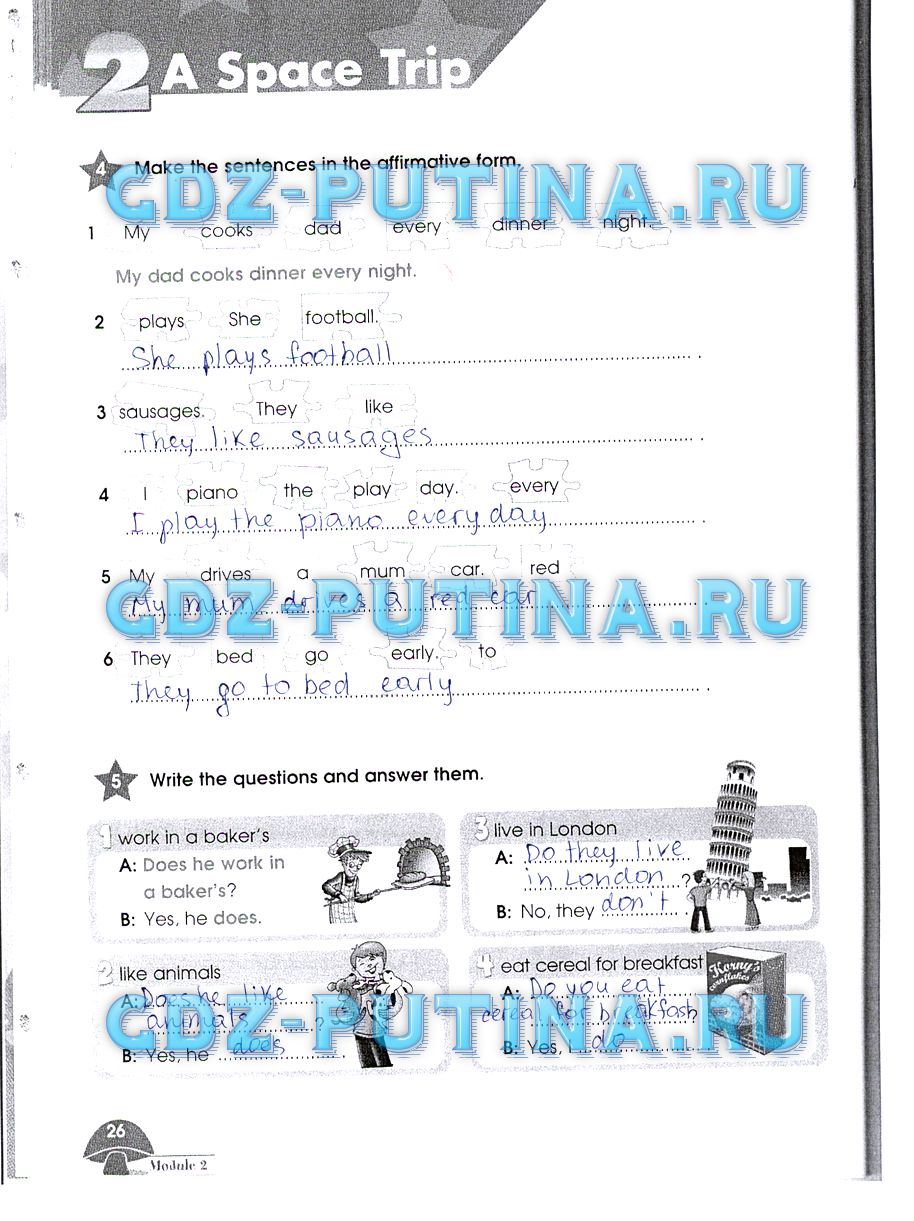 2 A Space Trip
4 Make the sentences in the affirmative form.
GDZ-PUTINA.RU
1 My cooks dad every dinner night.
My dad cooks dinner every night.
2 plays She football.
She plays football .
3 sausages. They like
They like sausages .
4 I piano the play day. every
I play the piano every day .
5 My drives a mum car. red
GDZ-PUTINA.RU
My mum drives a red car .
6 They bed go early. to
They go to bed early .
5 Write the questions and answer them.
1 work in a baker's
A: Does he work in
a baker's?
B: Yes, he does.
2 like animals
A: Does he like
animals ?
B: Yes, he does .
3 live in London
A: Do they live
in London ?
B: No, they don't .
4 eat cereal for breakfast
Korny's
cornflakes
A: Do you eat
cereal for breakfash
B: Yes, I do
GDZ-PUTINA.RU
26
Module 2